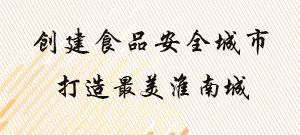 创建食品安全城市
打造最美淮南城